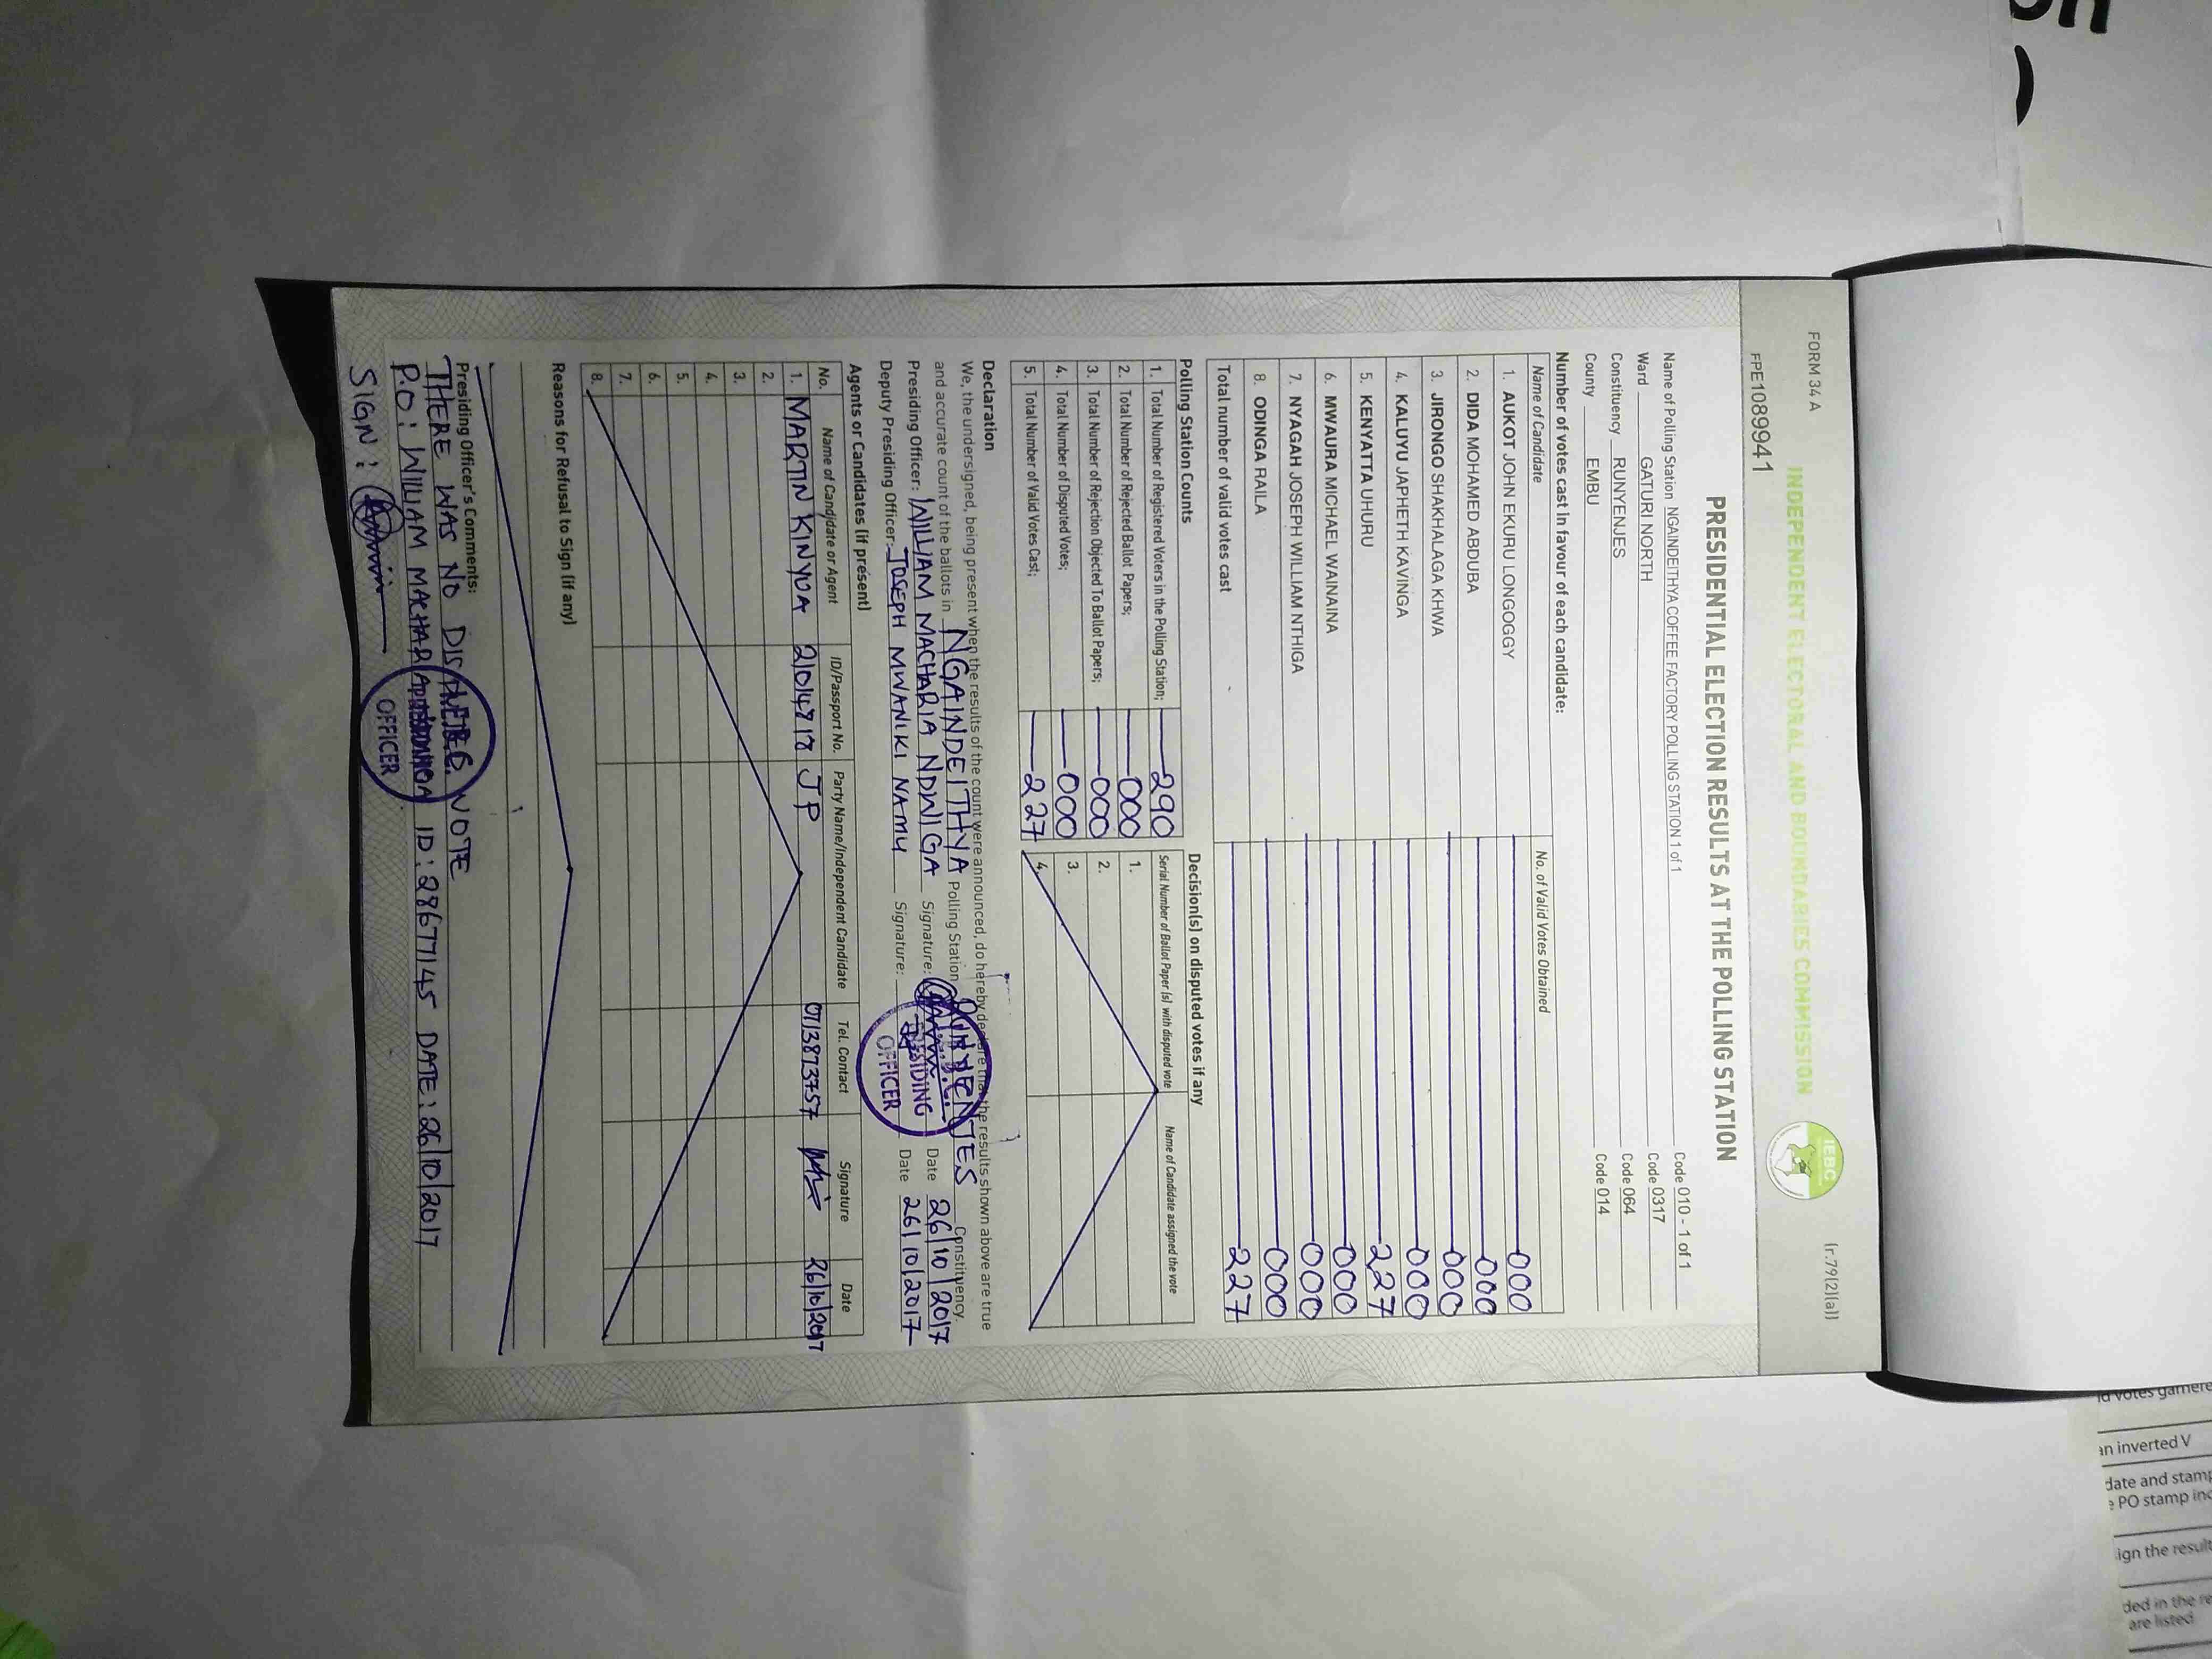 FORM 34 A
(r.79(2)(a))
INDEPENDENT ELECTORAL AND BOUNDARIES COMMISSION
IEBC
FPE1089941
PRESIDENTIAL ELECTION RESULTS AT THE POLLING STATION
Name of Polling Station NGAINDEITHYA COFFEE FACTORY POLLING STATION 1 of 1 Code 010 - 1 of 1
Ward GATURI NORTH Code 0317
Constituency RUNYENJES Code 064
County EMBU Code 014
Number of votes cast in favour of each candidate:
Name of Candidate No. of Valid Votes Obtained
1. AUKOT JOHN EKURU LONGOGGY 000
2. DIDA MOHAMED ABDUBA 000
3. JIRONGO SHAKHALAGA KHWA 000
4. KALUYU JAPHETH KAVINGA 000
5. KENYATTA UHURU 227
6. MWAURA MICHAEL WAINAINA 000
7. NYAGAH JOSEPH WILLIAM NTHIGA 000
8. ODINGA RAILA 000
Total number of valid votes cast 227
Polling Station Counts
1. Total Number of Registered Voters in the Polling Station; 290
2. Total Number of Rejected Ballot Papers; 000
3. Total Number of Rejection Objected To Ballot Papers; 000
4. Total Number of Disputed Votes; 000
5. Total Number of Valid Votes Cast; 227
Decision(s) on disputed votes if any
Serial Number of Ballot Paper (s) with disputed vote Name of Candidate assigned the vote
1.
2.
3.
4.
Declaration
We, the undersigned, being present when the results of the count were announced, do hereby declare that the results shown above are true
and accurate count of the ballots in NGAINDEITHYA Polling Station RUNYENJES Constituency.
Presiding Officer: WILLIAM MACHARIA NDWIGA Signature: Date 26/10/2017
Deputy Presiding Officer: JOSEPH MWANIKI NAMU Signature: Date 26/10/2017
PRESIDING
OFFICER
Agents or Candidates (if present)
No. Name of Candidate or Agent ID/Passport No. Party Name/Independent Candidate Tel. Contact Signature Date
1. MARTIN KINYUA JP 26/10/2017
2.
3.
4.
5.
6.
7.
8.
Reasons for Refusal to Sign (if any)
Presiding Officer's Comments:
THERE WAS NO VOTE
P.O: WILLIAM ID: 28677145 DATE: 26/10/2017
SIGN:
OFFICER
an inverted V
date and stamp
PO stamp
ign the result
ded in the re
are listed